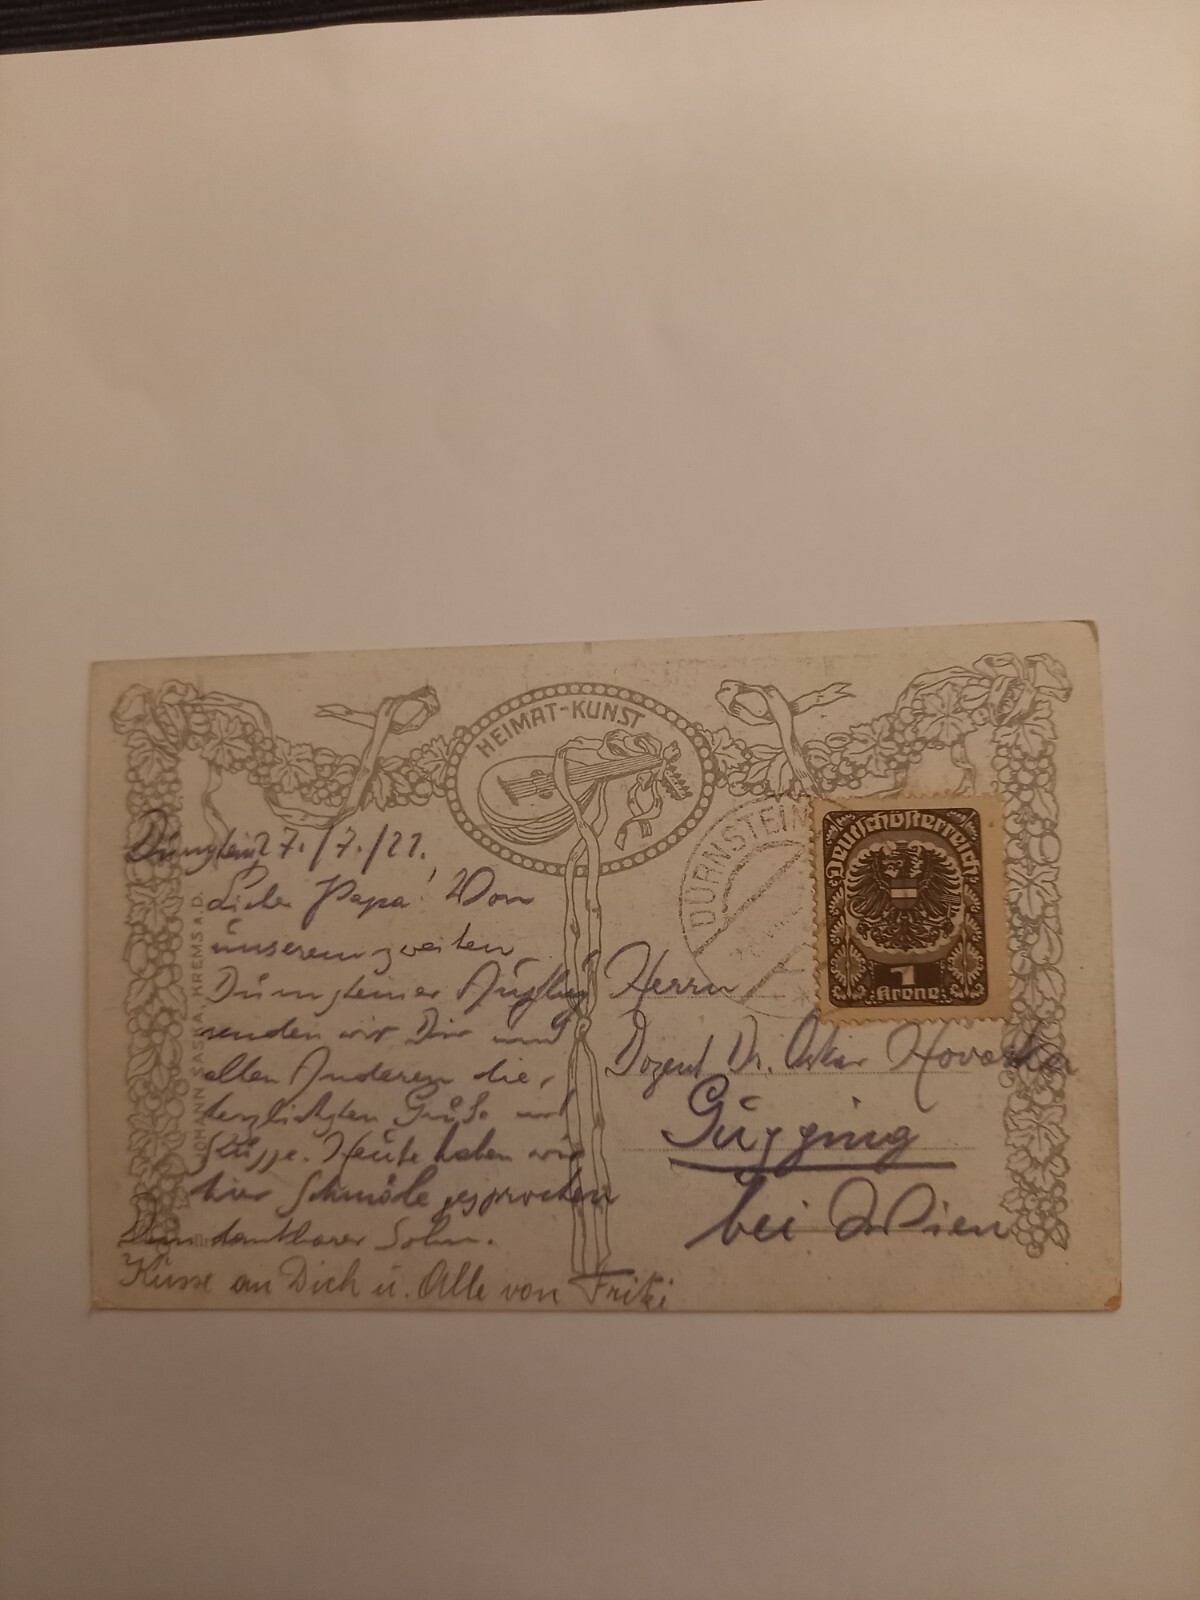 HEIMAT-KUNST
DÜRNSTEIN
Deutschösterreich
1
Krone
JOHANN SASKA, KREMS A.D.
Dürnstein 27./7./21.
Lieber Papa! Von
unserem zweiten
Dürnsteiner Ausflug
senden wir Dir und
allen Anderen die
herzlichsten Grüße und
Küsse. Heute haben wir
hier gesprochen
Dein dankbarer Sohn.
Küsse an Dich u. Alle von Friki
Herrn
Dozent Dr. Oskar Hovorka
Gugging
bei Wien